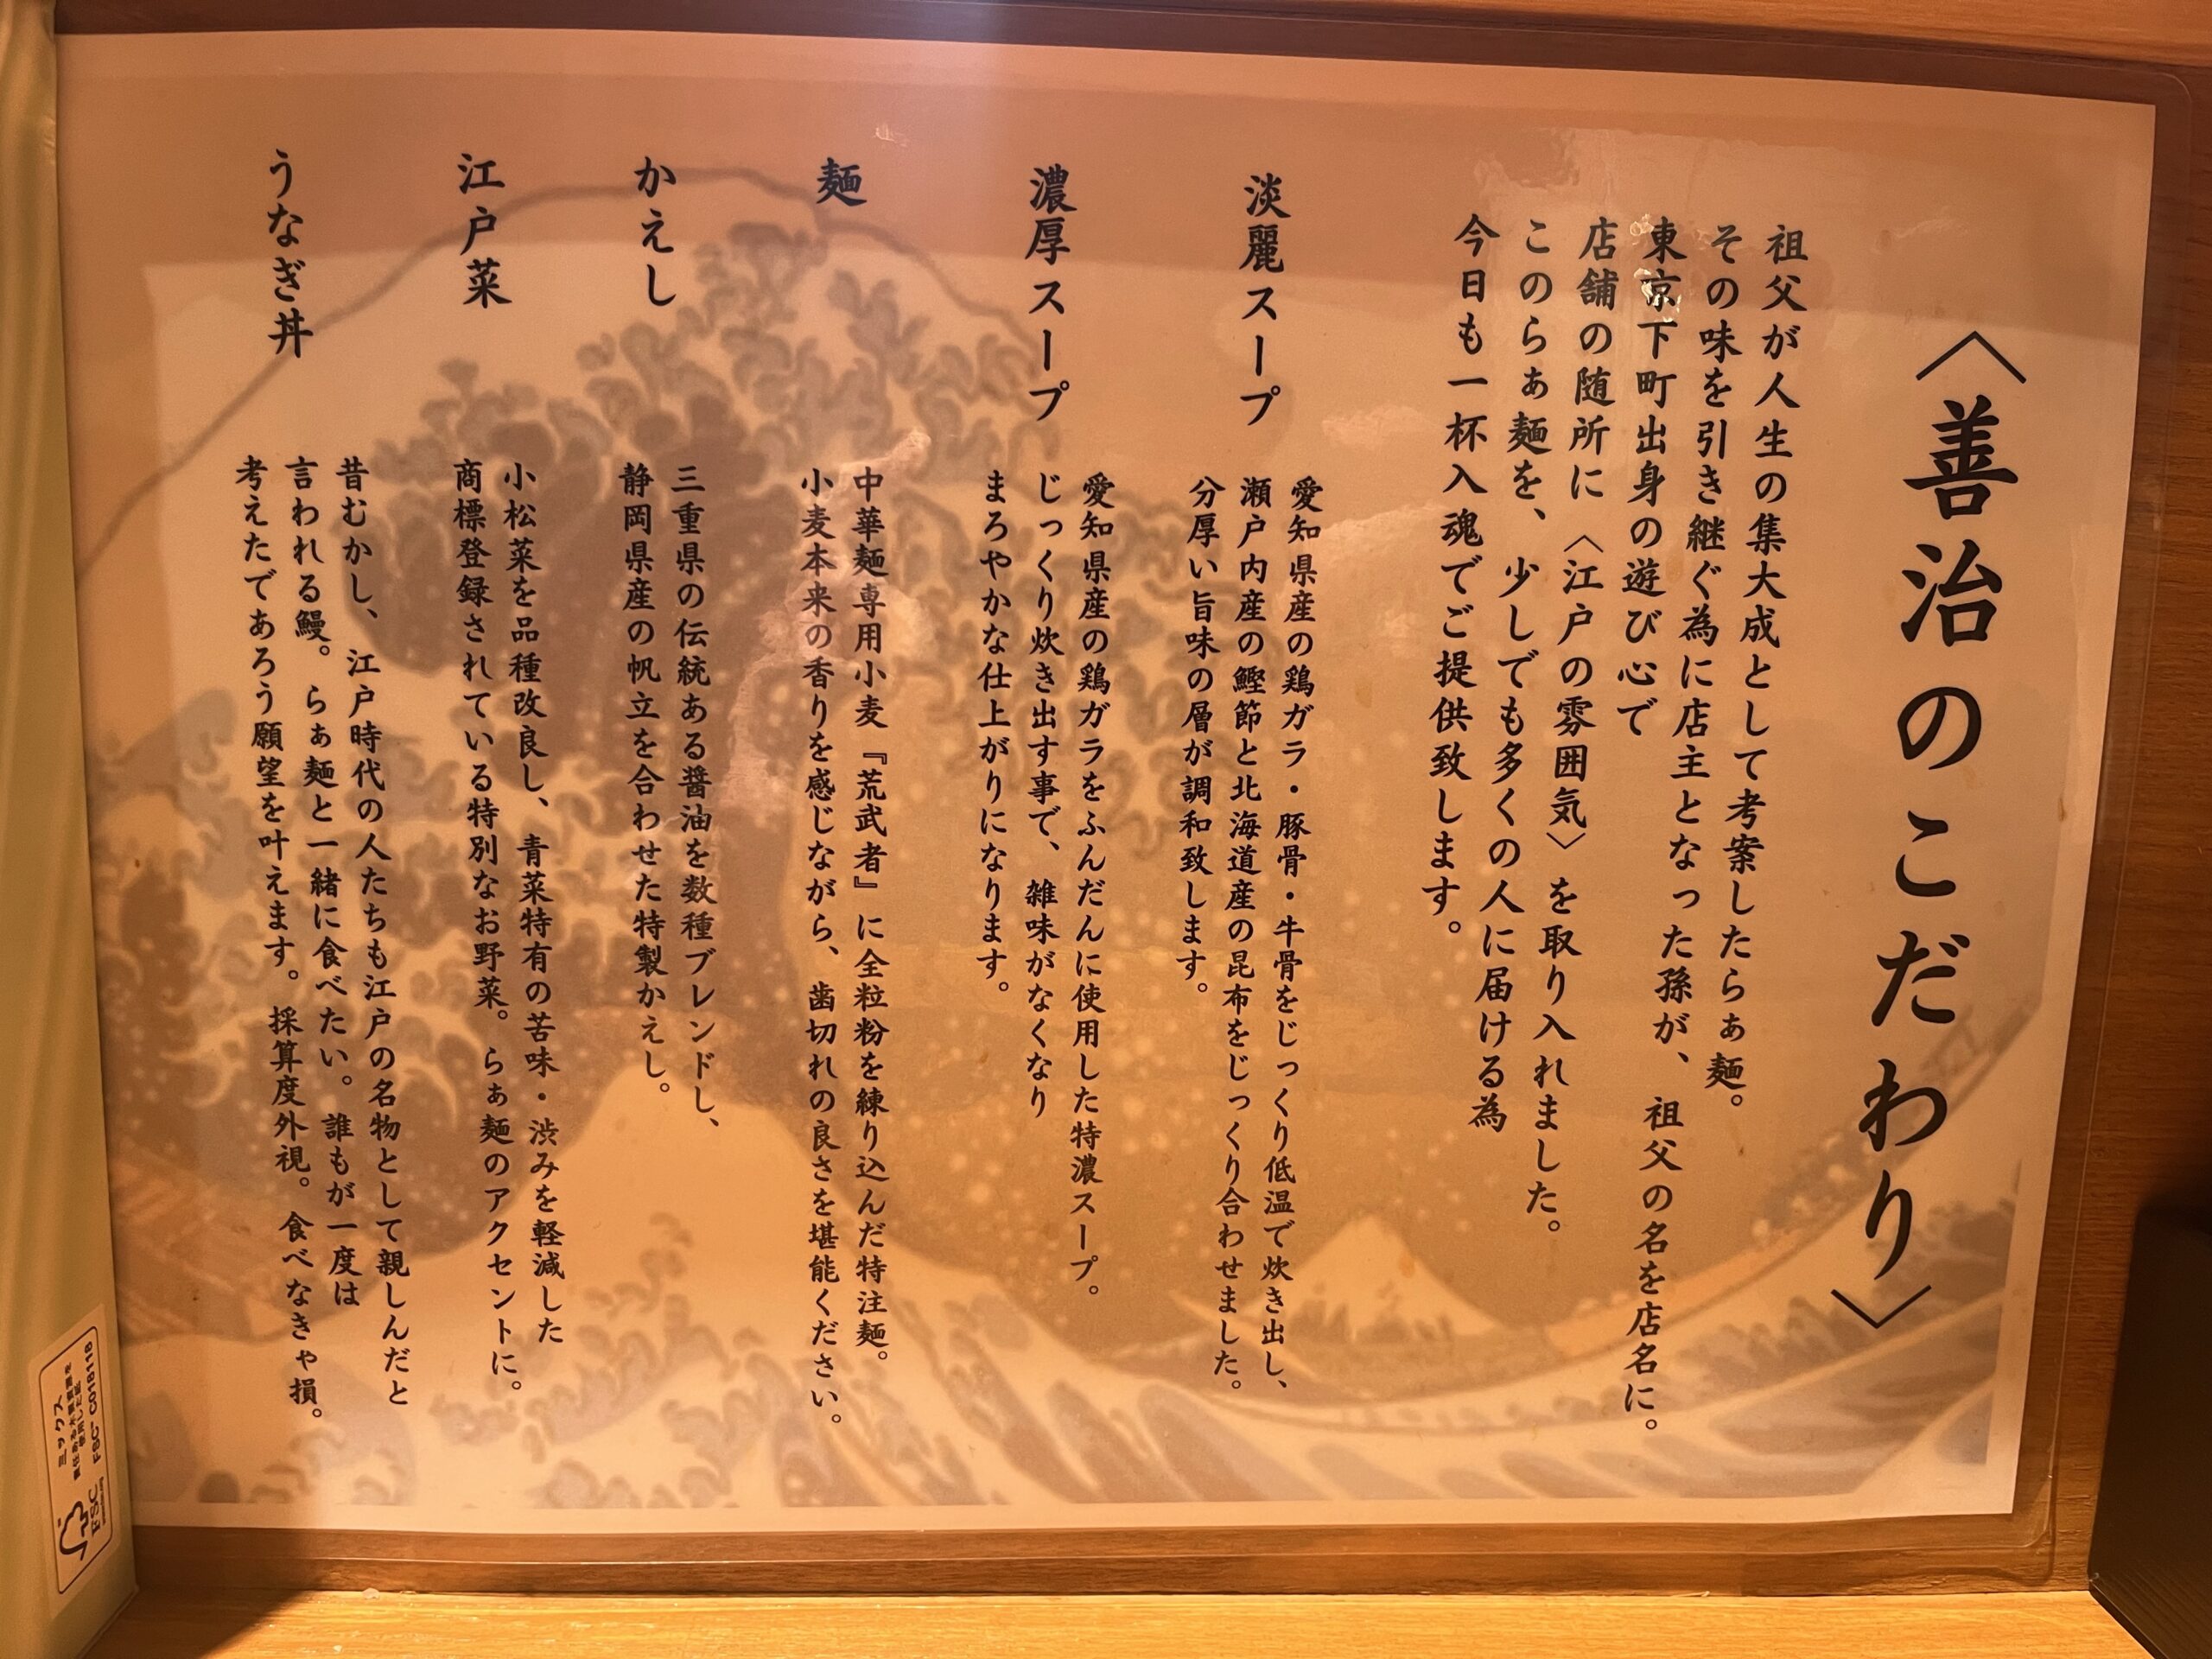 〈善治のこだわり〉
祖父が人生の集大成として考案したらぁ麺。
その味を引き継ぐ為に店主となった孫が、祖父の名を店名に。
東京下町出身の遊び心で
店舗の随所に〈江戸の雰囲気〉を取り入れました。
このらぁ麺を、少しでも多くの人に届ける為
今日も一杯入魂でご提供致します。
淡麗スープ
愛知県産の鶏ガラ・豚骨・牛骨をじっくり低温で炊き出し、
瀬戸内産の鰹節と北海道産の昆布をじっくり合わせました。
分厚い旨味の層が調和致します。
濃厚スープ
愛知県産の鶏ガラをふんだんに使用した特濃スープ。
じっくり炊き出す事で、雑味がなくなり
まろやかな仕上がりになります。
麺
中華麺専用小麦『荒武者』に全粒粉を練り込んだ特注麺。
小麦本来の香りを感じながら、歯切れの良さを堪能ください。
かえし
三重県の伝統ある醤油を数種ブレンドし、
静岡県産の帆立を合わせた特製かえし。
江戸菜
小松菜を品種改良し、青菜特有の苦味・渋みを軽減した
商標登録されている特別なお野菜。らぁ麺のアクセントに。
うなぎ丼
昔むかし、江戸時代の人たちも江戸の名物として親しんだと
言われる鰻。らぁ麺と一緒に食べたい。誰もが一度は
考えたであろう願望を叶えます。採算度外視。食べなきゃ損。
ミックス
責任ある木質資源を
使用した紙
FSC® C018118
FSC